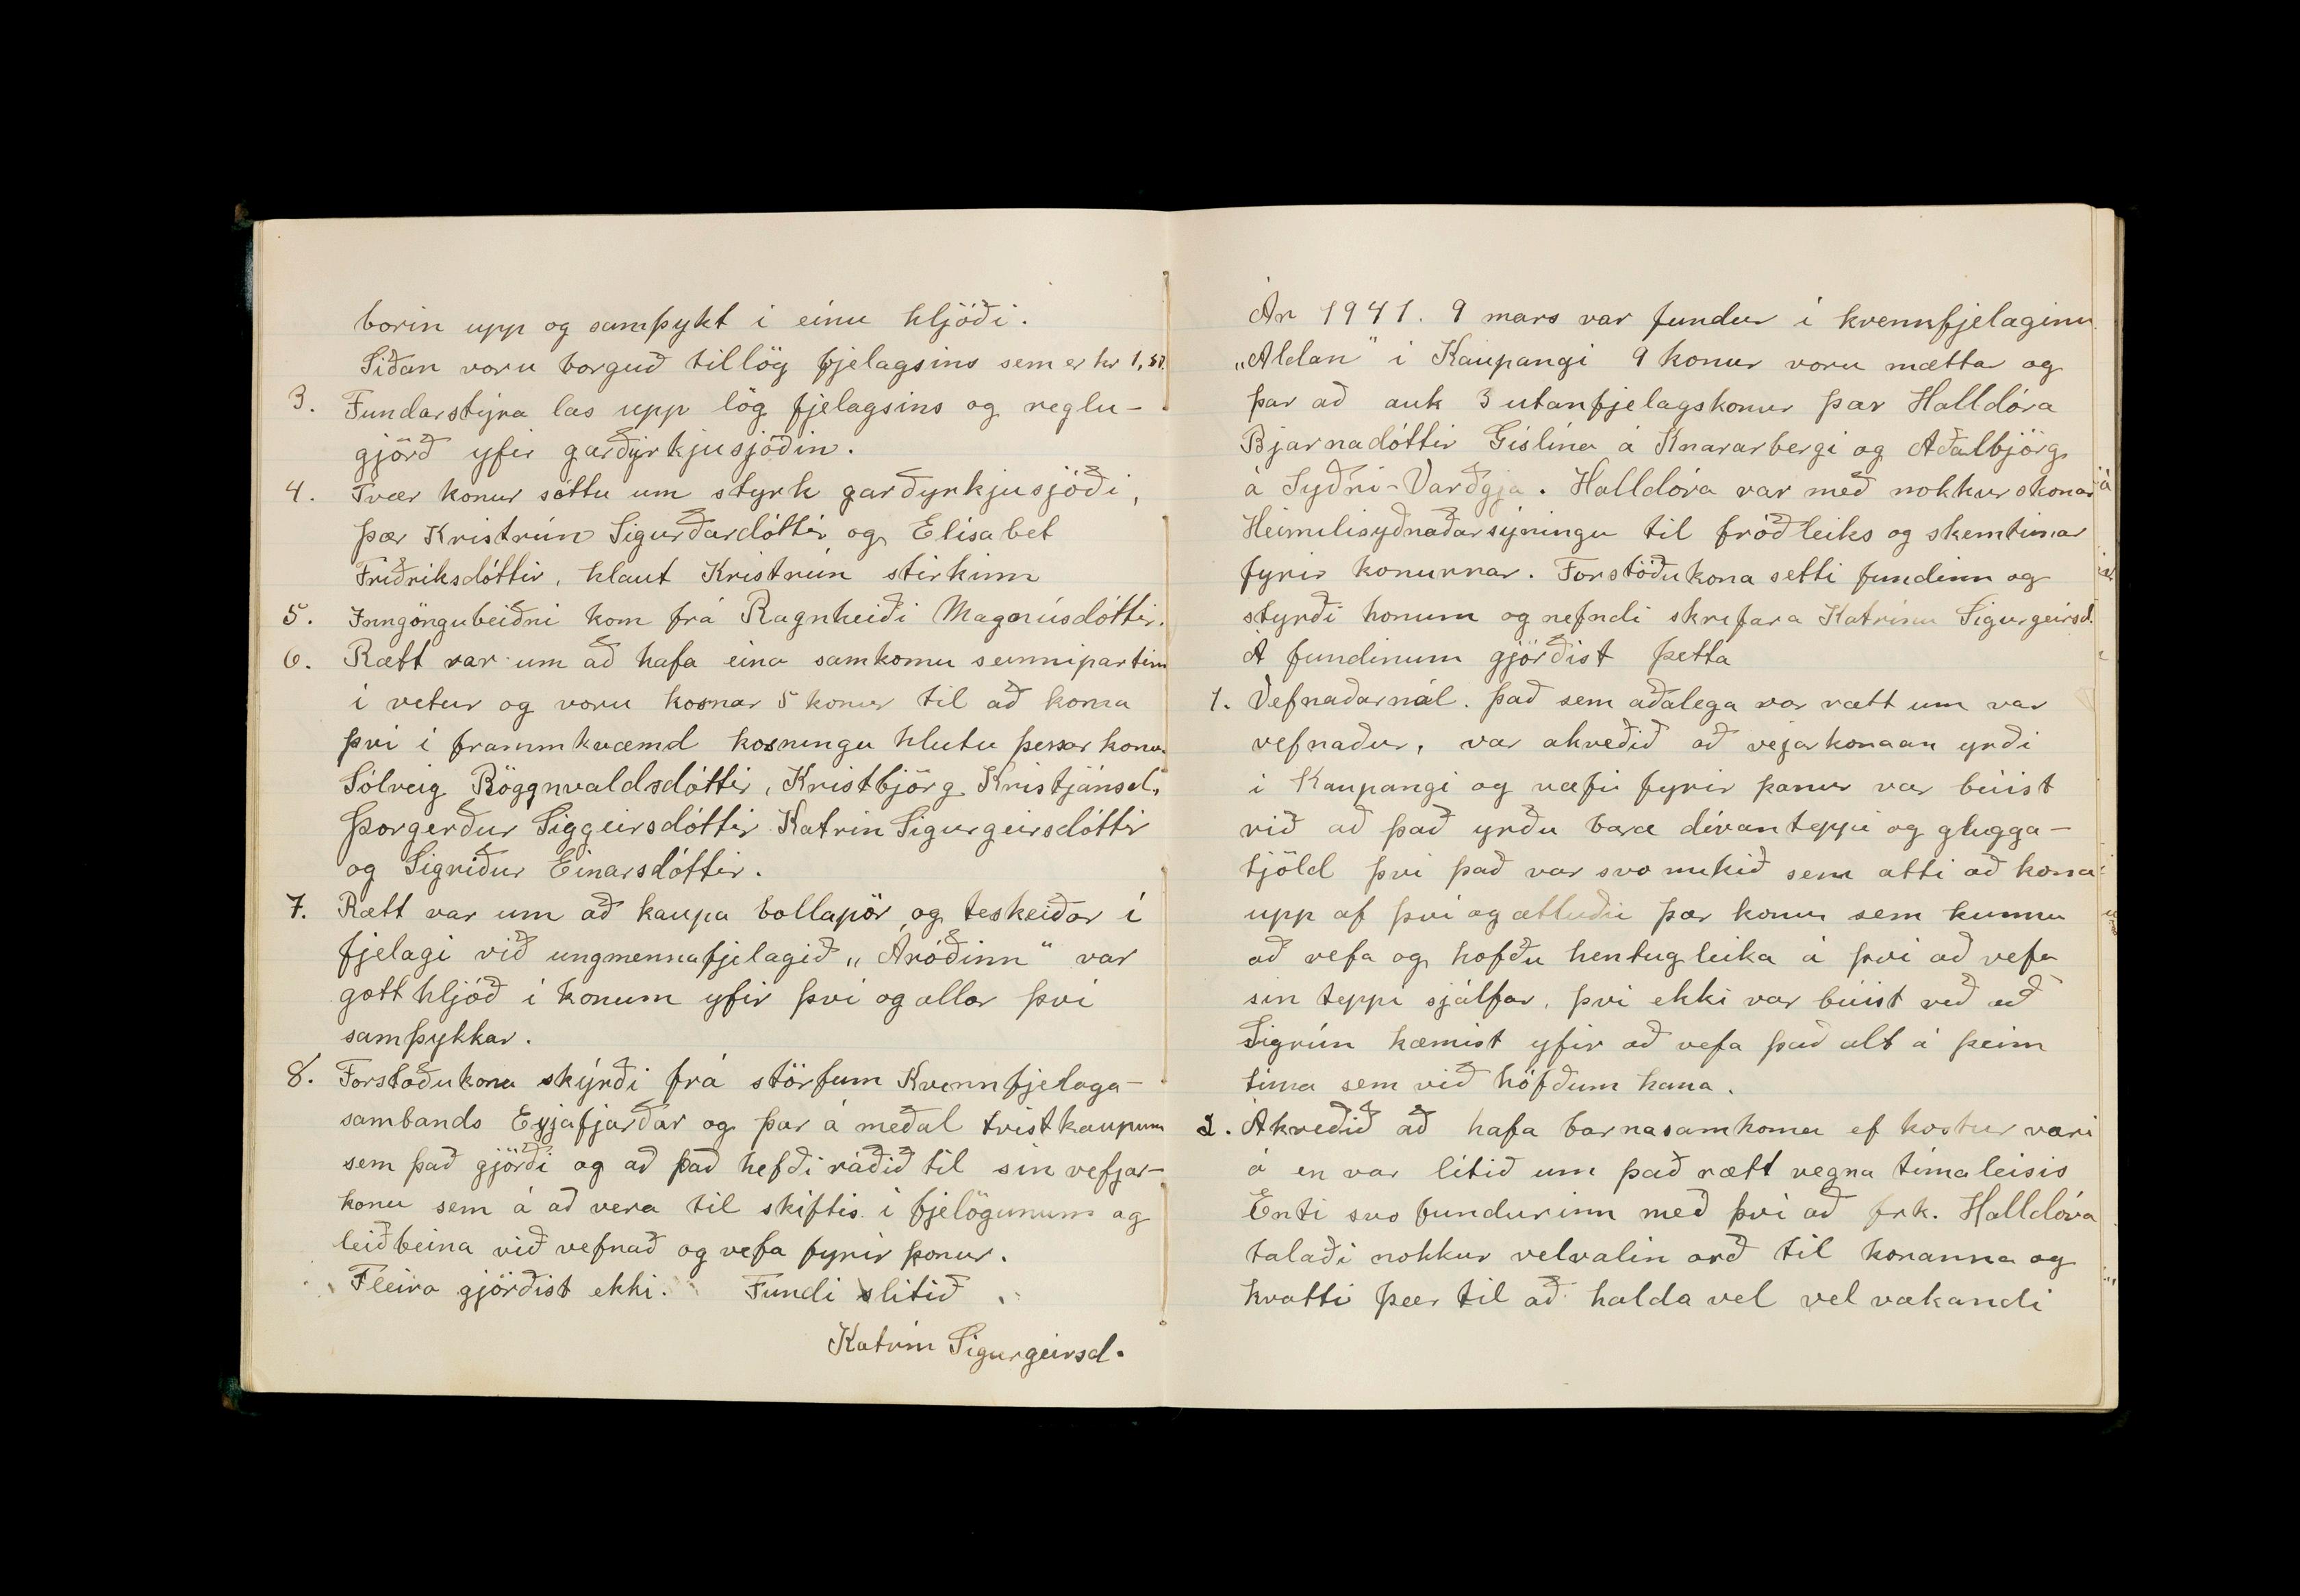 borin upp og samþykt i einu hljóði.
Síðan voru borguð tillög fjelagsins sem er kr 1,50.
3. Fundarstýra las upp lög fjelagsins og reglu-
gjörð yfir garðyrkjusjóðin.
4. Tvær konur sóttu um styrk garðyrkjusjóði,
þær Kristrún Sigurðardóttir og Elísabet
Friðriksdóttir, hlaut Kristrún stirkinn
5. Inngöngubeiðni kom frá Ragnheiði Magnúsdóttir.
6. Rætt var um að hafa eina samkomu seinnipartinn
í vetur og voru kosnar 5 konur til að koma
því í frammkvæmd kosningu hlutu þessar konur
Sólveig Röggnvaldsdóttir, Kristbjörg Kristjánsd,
Þorgerður Siggeirsdóttir Katrín Sigurgeirsdóttir
og Sigríður Einarsdóttir.
7. Rætt var um að kaupa bollapör og teskeiðar í
fjelagi við ungmennafjelagið „Áróðinn" var
gott hljóð í konum yfir því og allar því
samþykkar.
8. Forstöðukona skýrði frá störfum Kvennfjelaga-
sambands Eyjafjarðar og þar á meðal tvistkaupum
sem það gjörði og að það hefði ráðið til sín vefjar-
konu sem á að vera til skiftis í fjelögunum og
leiðbeina við vefnað og vefa fyrir þonur.
Fleira gjörðist ekki. Fundi slitið.
Katrín Sigurgeirsd.
Ár 1941. 9 mars var fundur í kvennfjelaginu
„Aldan" i Kaupangi 9 konur voru mættar og
þar að auk 3 utanfjelagskonur þær Halldóra
Bjarnadóttir Gíslína á Knararbergi og Aðalbjörg
á Syðri-Varðgjá. Halldóra var með nokkurskonar
Heimilisyðnaðarsýningu til fróðleiks og skemtunar
fyrir konurnar. Forstöðukona setti fundinn og
styrði honum og nefndi skrifara Katrínu Sigurgeirsd.
Á fundinum gjörðist þetta
1. Vefnaðarmál. Það sem aðalega var rætt um var
vefnaður, var akveðið að vefjarkonaan yrði
i Kaupangi og væfi fyrir þonur var búist
við að það yrðu bara dívanteppi og glugga-
tjöld því það var svo mikið sem átti að koma
upp af því og ætluðu þær konur sem kunnu
að vefa og hofðu hentugleika á því að vefa
sin teppi sjálfar, því ekki var búist við að
Sigrún kæmist yfir að vefa það alt á þeim
tíma sem við höfðum hana.
2. Ákveðið að hafa barnasamkomu ef kostur væri
á en var lítið um það rætt vegna tímaleisis
Enti svo fundurinn með því að frk. Halldóra
talaði nokkur velvalin orð til konanna og
hvatti þær til að halda vel vel vakandi